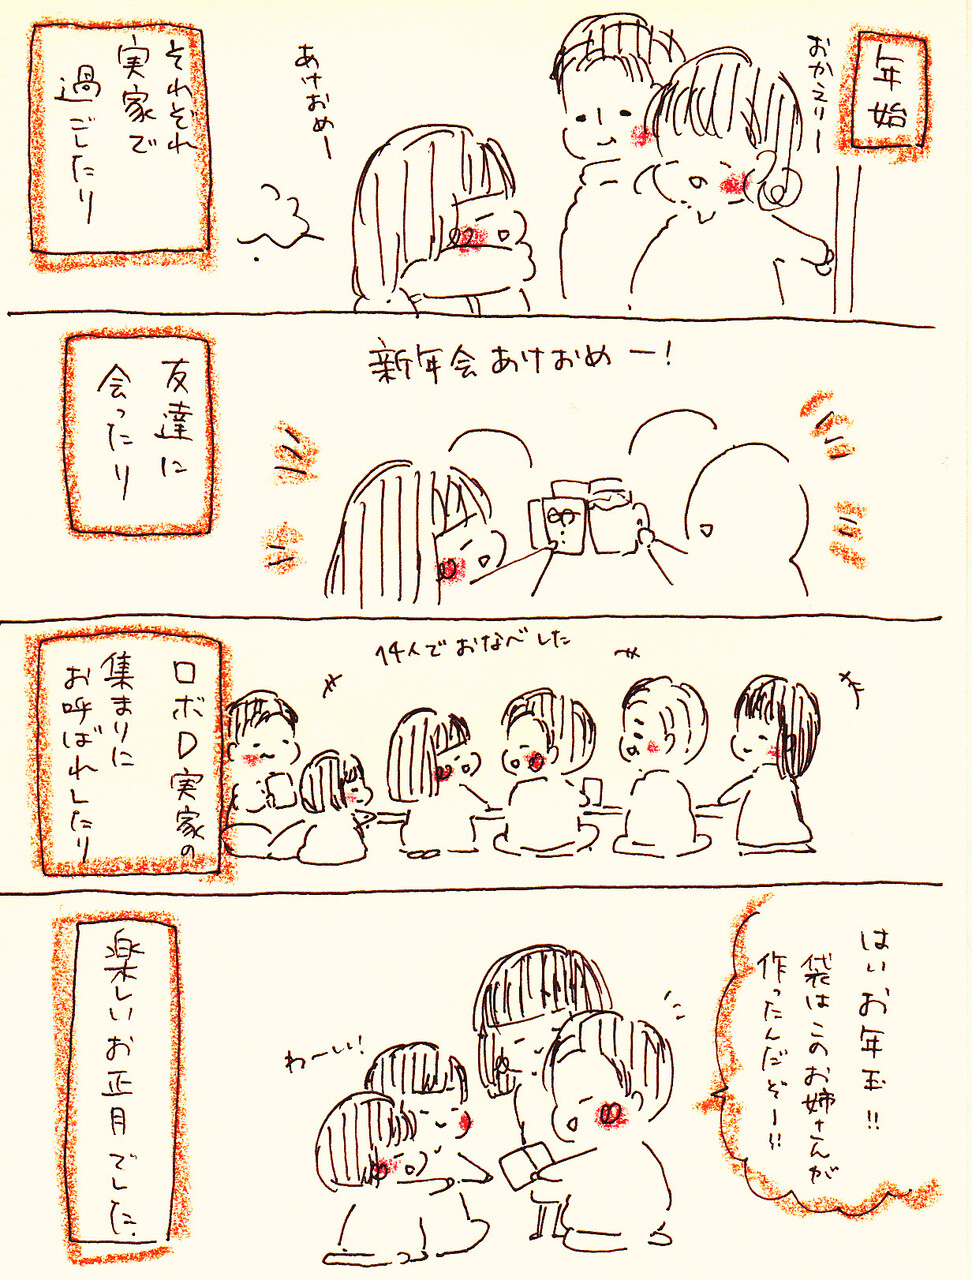 年始
おかえりー
あけおめー
それぞれ
実家で
過ごしたり
新年会あけおめー!
友達に
会ったり
14人でおなべした
ロボD実家の
集まりに
お呼ばれしたり
はいお年玉!!
袋はこのお姉さんが
作ったんだぞー!!
わーい!
楽しいお正月でした